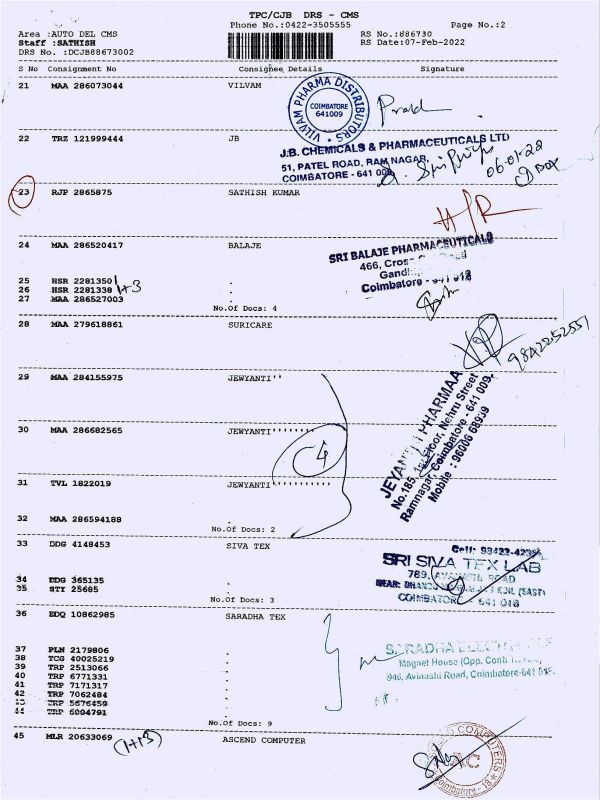 TPC/CJB DRS - CMS
Phone No.:0422-3505555
Page No.:2
Area :AUTO DEL CMS
RS No.:886730
Staff :SATHISH
RS Date:07-Feb-2022
DRS No. :DCJB88673002
S No Consignment No Consignee Details Signature
21 MAA 286073044 VILVAM
VILVAM PHARMA DISTRIBUTORS
COIMBATORE
641009
22 TRZ 121999444 JB
J.B. CHEMICALS & PHARMACEUTICALS LTD
51, PATEL ROAD, RAM NAGAR,
COIMBATORE - 641 009
23 RJP 2865875 SATHISH KUMAR
24 MAA 286520417 BALAJE
SRI BALAJE PHARMACEUTICALS
466, Cross
Coimbatore - 641 012
25 HSR 2281350 .
26 HSR 2281338 .
1+3
27 MAA 286527003 .
No.Of Docs: 4
28 MAA 279618861 SURICARE
9842252551
29 MAA 284155975 JEWYANTI''
30 MAA 286682565 JEWYANTI''''''''
4
31 TVL 1822019 JEWYANTI''''''''''
JEYANTHI PHARMAA
No.185, 1st Floor, Nehru Street
Ramnagar, Coimbatore - 641 009.
Mobile : 96006 68909
32 MAA 286594188 .
No.Of Docs: 2
33 DDG 4148453 SIVA TEX
SRI SIVA TEX LAB
789, AVINASHI ROAD
COIMBATORE - 641 018
34 EDG 365135 .
35 STI 25685 .
No.Of Docs: 3
36 EDQ 10862985 SARADHA TEX
Magnet House (Opp.
946, Avinashi Road, Coimbatore-641 018.
37 PLN 2179806 .
38 TCG 40025219 .
39 TRP 2513066 .
40 TRP 6771331 .
41 TRP 7171317 .
42 TRP 7062484 .
43 TRP 5676459 .
44 TRP 6004791 .
No.Of Docs: 9
45 MLR 20633069 ASCEND COMPUTER
(1+13)
COMPUTERS
AC
Coimbatore - 18